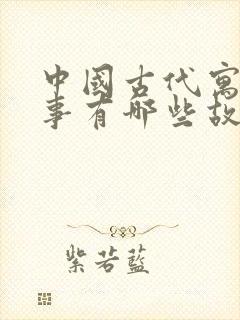 中國古代寓
事有哪些故
紫若藍